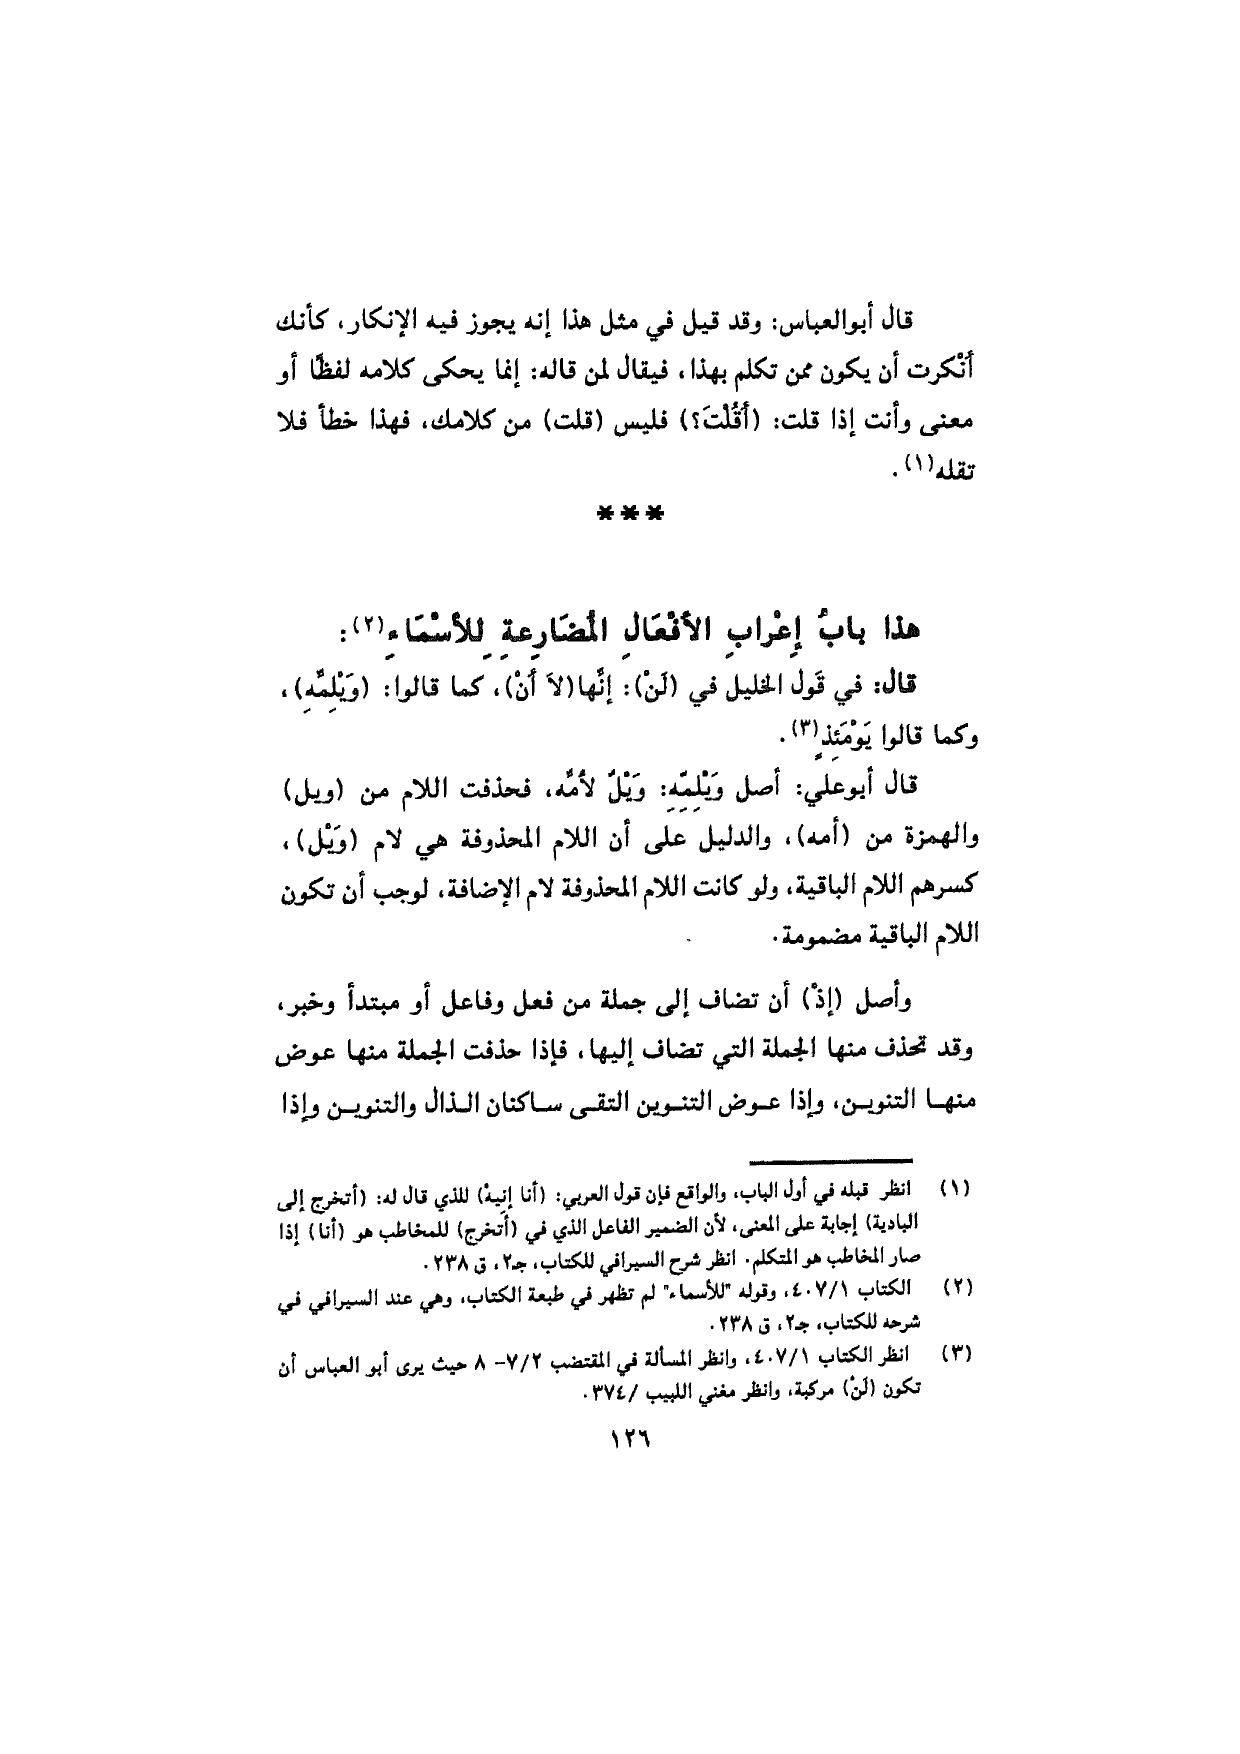 قال أبوالعباس: وقد قيل في مثل هذا إنه يجوز فيه الإنكار، كأنك
أَنْكرت أن يكون ممن تكلم بهذا، فيقال لمن قاله: إنما يحكى كلامه لفظًا أو
معنى وأنت إذا قلت: (أَقُلْتَ؟) فليس (قلت) من كلامك، فهذا خطأ فلا
تقله(١).
***
هذا بابُ إِعْرابِ الأَفْعَالِ المُضَارِعةِ لِلأسْمَاءِ(٢):
قال: في قَول الخليل في (لَنْ): إنَّها(لاَ أَنْ)، كما قالوا: (وَيْلِمِّهِ)،
وكما قالوا يَوْمَئِذٍ(٣).
قال أبوعلي: أصل وَيْلِمِّهِ: وَيْلٌ لأُمِّه، فحذفت اللام من (ويل)
والهمزة من (أمه)، والدليل على أن اللام المحذوفة هي لام (وَيْل)،
كسرهم اللام الباقية، ولو كانت اللام المحذوفة لام الإضافة، لوجب أن تكون
اللام الباقية مضمومة.
وأصل (إذْ) أن تضاف إلى جملة من فعل وفاعل أو مبتدأ وخبر،
وقد تحذف منها الجملة التي تضاف إليها، فإذا حذفت الجملة منها عوض
منها التنوين، وإذا عوض التنوين التقى ساكنان الذال والتنوين وإذا
(١) انظر قبله في أول الباب، والواقع فإن قول العربي: (أنا إنِيهْ) للذي قال له: (أتخرج إلى
البادية) إجابة على المعنى، لأن الضمير الفاعل الذي في (أتَخرج) للمخاطب هو (أنا) إذا
صار المخاطب هو المتكلم. انظر شرح السيرافي للكتاب، جـ٢، ق ٢٣٨.
(٢) الكتاب ٤٠٧/١، وقوله "للأسماء" لم تظهر في طبعة الكتاب، وهي عند السيرافي في
شرحه للكتاب، جـ٢، ق ٢٣٨.
(٣) انظر الكتاب ٤٠٧/١، وانظر المسألة في المقتضب ٧/٢- ٨ حيث يرى أبو العباس أن
تكون (لَنْ) مركبة، وانظر مغني اللبيب /٣٧٤.
١٢٦